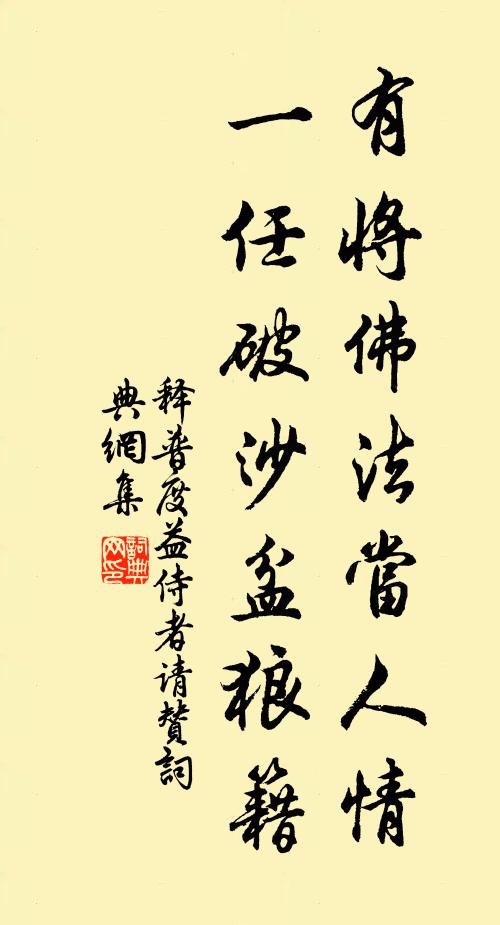 有將佛法當人情
一任破沙盆狼籍
释普度益侍者请赞詞
典網集
詞典网印